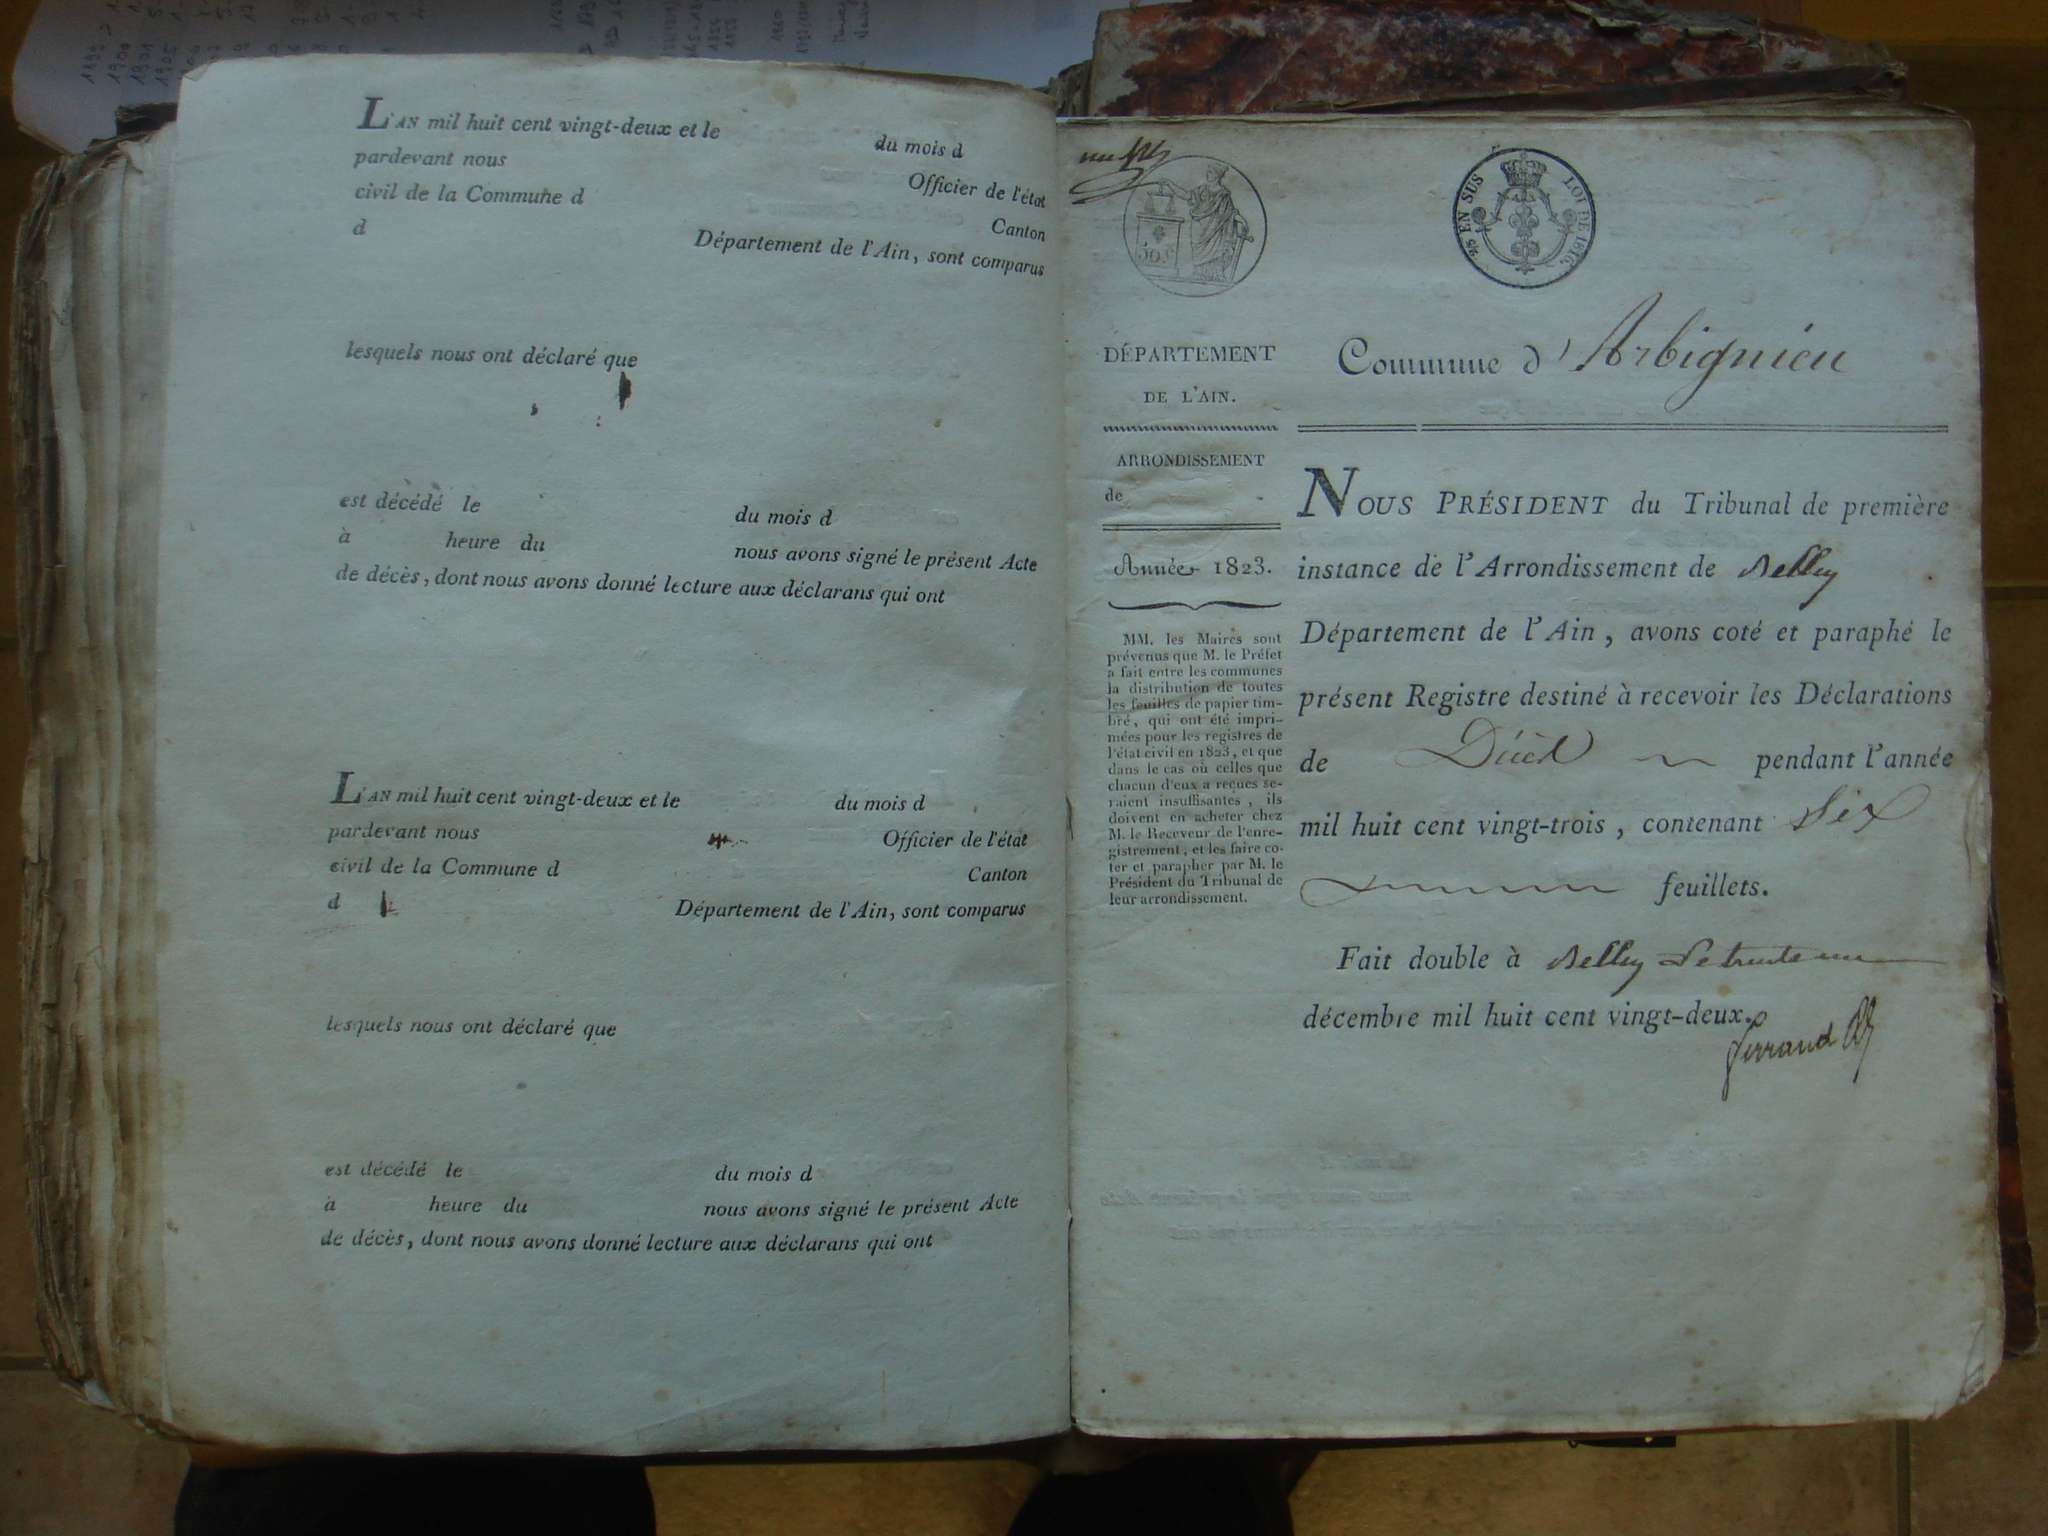 L'AN mil huit cent vingt-deux et le du mois d
pardevant nous Officier de l'état
civil de la Commune d Canton
d Département de l'Ain, sont comparus
lesquels nous ont déclaré que
est décédé le du mois d
à heure du nous avons signé le présent Acte
de décès, dont nous avons donné lecture aux déclarans qui ont
L'AN mil huit cent vingt-deux et le du mois d
pardevant nous Officier de l'état
civil de la Commune d Canton
d Département de l'Ain, sont comparus
lesquels nous ont déclaré que
est décédé le du mois d
à heure du nous avons signé le présent Acte
de décès, dont nous avons donné lecture aux déclarans qui ont
50.C
EN SUS LOI DE 1816.
DÉPARTEMENT
DE L'AIN.
ARRONDISSEMENT
de
Année 1823.
MM. les Maires sont
prévenus que M. le Préfet
a fait entre les communes
la distribution de toutes
les feuilles de papier tim-
bré, qui ont été impri-
mées pour les registres de
l'état civil en 1823, et que
dans le cas où celles que
chacun d'eux a reçues se-
raient insuffisantes, ils
doivent en acheter chez
M. le Receveur de l'enre-
gistrement, et les faire co-
ter et parapher par M. le
Président du Tribunal de
leur arrondissement.
Commune d'Arbignieu
NOUS PRÉSIDENT du Tribunal de première
instance de l'Arrondissement de Belley
Département de l'Ain, avons coté et paraphé le
présent Registre destiné à recevoir les Déclarations
de Décès pendant l'année
mil huit cent vingt-trois, contenant Six
feuillets.
Fait double à Belley le trente un
décembre mil huit cent vingt-deux.
ferrand